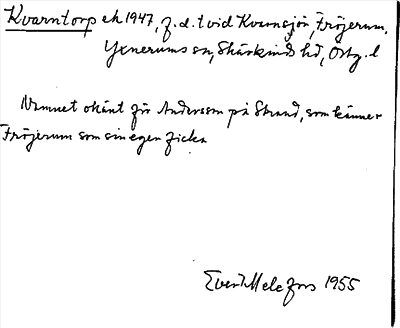 Kvarntorp ek 1947, f.d. t vid Kvarnsjön, Fröjerum,
Yxnerums sn, Skärkinds hd, Östg. l
Namnet okänt för Andersson på Strand, som känner
Fröjerum som sin egen ficka
Evert Melefors 1955